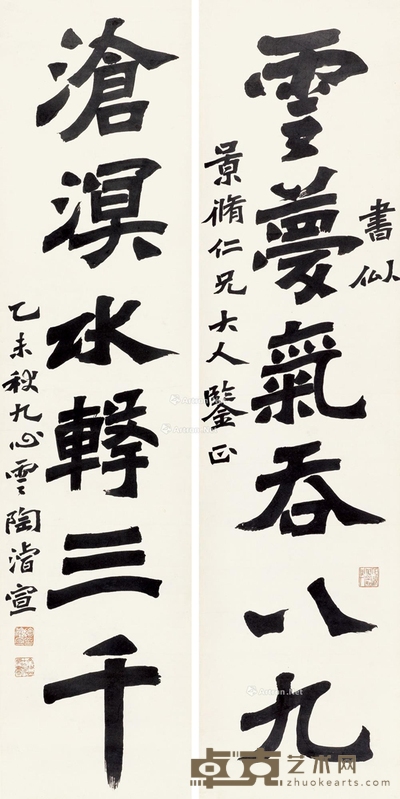 雲夢氣吞八九
書似
景脩仁兄大人鑒正
滄溟水擊三千
乙未秋九心雲陶濬宣
卓克艺术网
zhuokearts.com